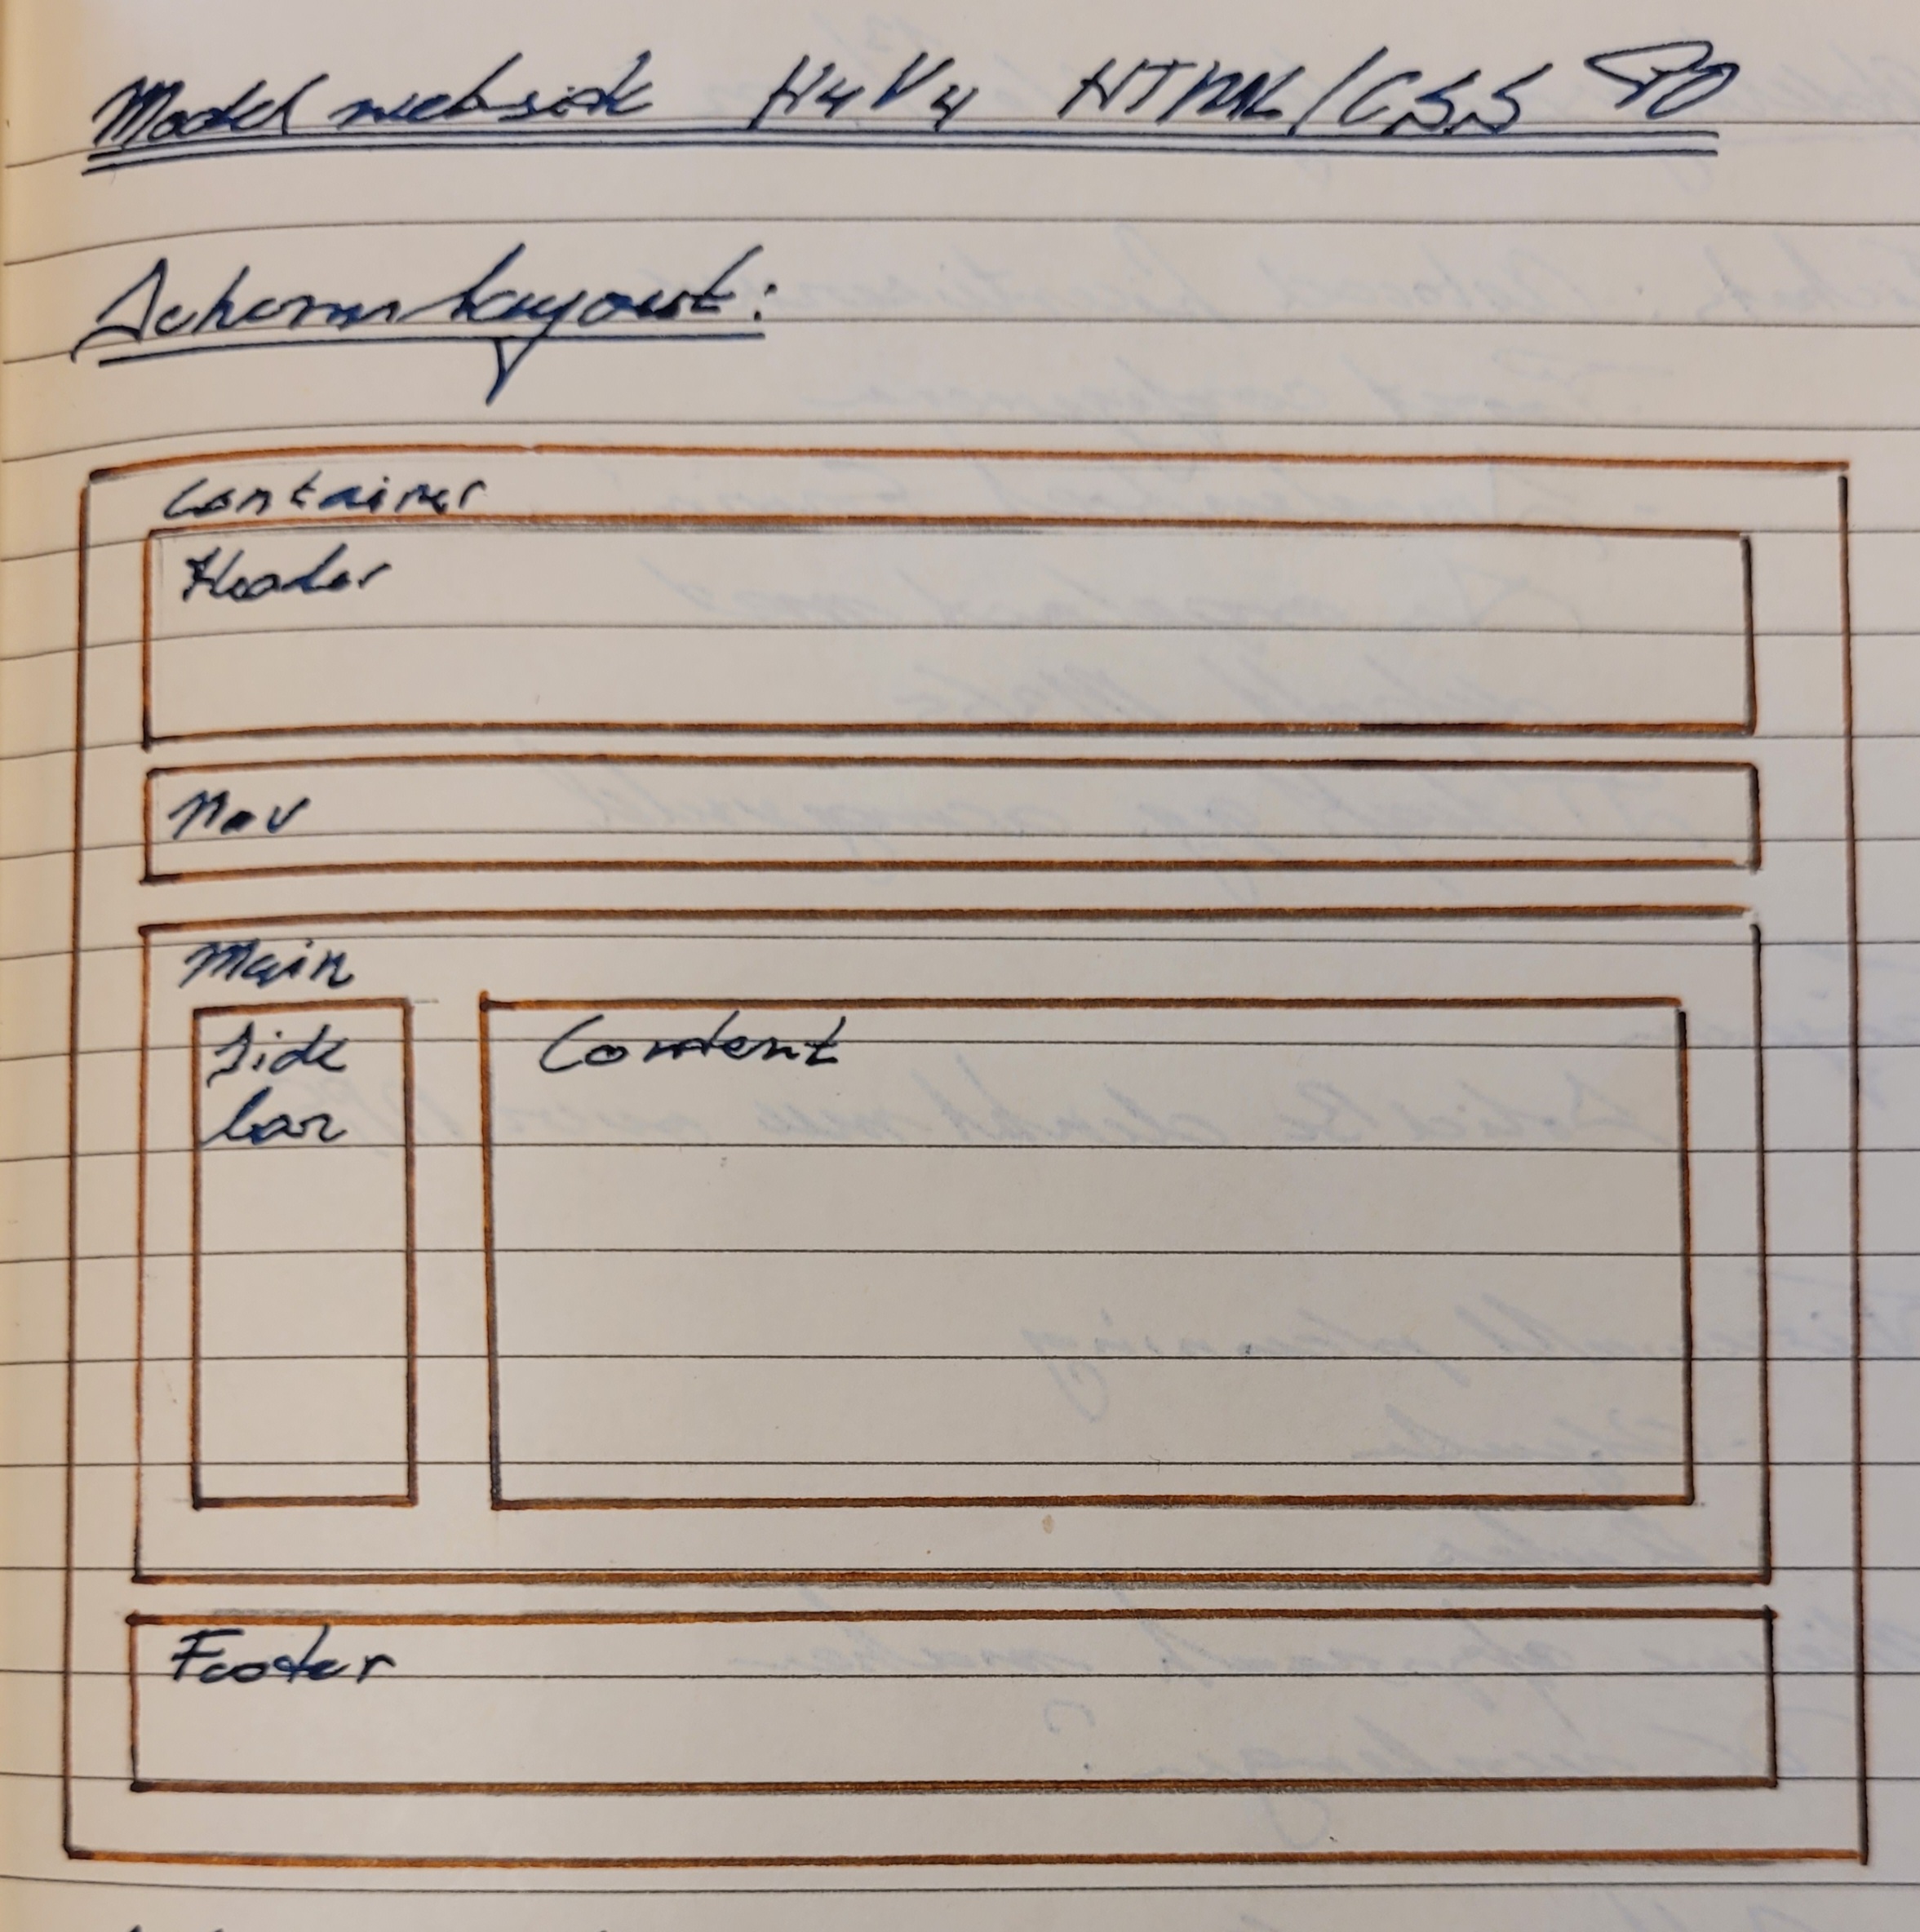 Model website H4V4 HTML/CSS PO
Schema layout:
Container
Header
Nav
Main
Side
bar
Content
Footer